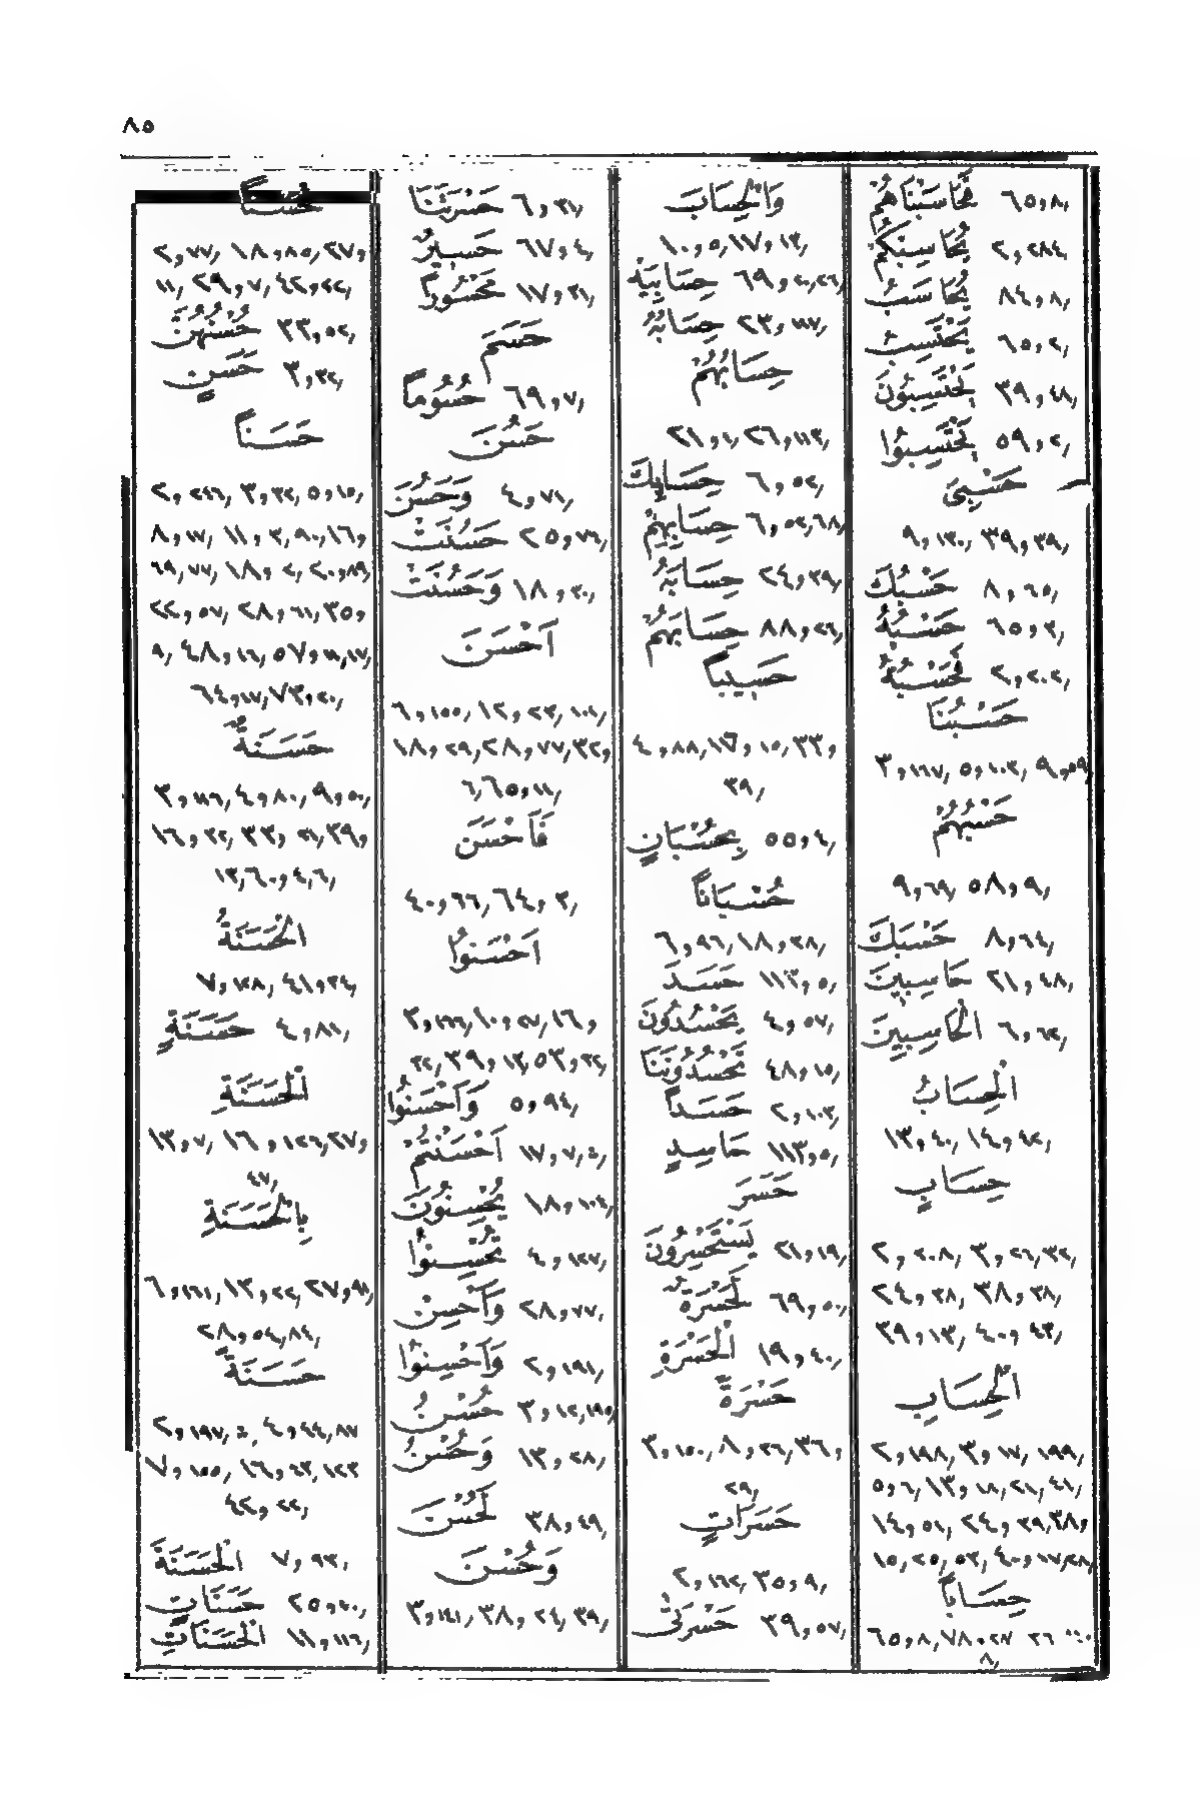 ٨٥
فَحَاسَبْنَاهُمْ ٦٥,٨,
يُحَاسِبْكُمْ ٢,٢٨٤
يُحَاسَبُ ٨٤,٨,
يَحْتَسِبُ ٦٥,٢,
يَحْتَسِبُونَ ٣٩,٤٨,
يَحْتَسِبُوا ٥٩,٢,
حَسْبِىَ
٩,١٣٠, ٣٩,٣٩,
حَسْبُكَ ٨,٦٥,
حَسْبُهُ ٦٥,٣,
فَحَسْبُهُ ٢,٢٠٢,
حَسْبُنَا
٣,١٦٧, ٥,١٠٣, ٩,٥٩
حَسْبُهُمْ
٩,٦٩, ٥٨,٩,
حَسْبَكَ ٨,٦٤,
حَاسِبِينَ ٢١,٤٨,
الْحَاسِبِينَ ٦,٦٢,
الْحِسَابُ
١٣,٤٠, ١٤,٤٢,
حِسَابٍ
٢,٢٠٨, ٣,٢٦,٣٢,
٢٤,٣٨, ٣٨,٣٨,
٣٩,١٣, ٤٠,٤٣,
الْحِسَابِ
٢,١٩٨, ٣,١٧, ١٩٩,
٥,٦, ١٣,١٨,٢١,٤١,
١٤,٥١, ٢٤,٣٩,٣٨,
١٥,٢٥,٥٣, ٤٠,١٧,٢٨,
حِسَاباً
٦٥,٨,٧٨,٢٧ ٣٦
٨,
وَالْحِسَابَ
١٠,٥,١٧,١٣,
حِسَابِيَهْ ٦٩,٢٠,٢٦,
حِسَابُهُ ٢٣,١١٧,
حِسَابُهُمْ
٢١,١, ٢٦,١١٣,
حِسَابِكَ ٦,٥٢,
حِسَابِهِمْ ٦,٥٢,٦٨,
حِسَابَهُ ٢٤,٣٩,
حِسَابَهُمْ ٨٨,٢٦,
حَسِيباً
٤,٨٨,١٧,١٥,٣٣,
٣٩,
بِحُسْبَانٍ ٥٥,٤,
حُسْبَاناً
٦,٩٦,١٨,٣٨,
حَسَدَ ١١٣,٥,
يَحْسُدُونَ ٤,٥٧,
تَحْسُدُونَنَا ٤٨,١٥,
حَسَداً ٢,١٠٣,
حَاسِدٍ ١١٣,٥,
حَسَرَ
يَسْتَحْسِرُونَ ٢١,١٩,
لَحَسْرَةٌ ٦٩,٥٠,
الْحَسْرَةِ ١٩,٤٠,
حَسْرَةً
٣,١٥٠, ٨,٣٦,٣٦,
٢٩,
حَسَرَاتٍ
٢,١٦٢, ٣٥,٩,
حَسْرَتٰى ٣٩,٥٧,
حَسْرَتَنَا ٦,٣١,
حَسِيرٌ ٦٧,٤,
مَحْسُوراً ١٧,٣١,
حَسَمَ
حُسُوماً ٦٩,٧,
حَسُنَ
وَحَسُنَ ٤,٧١,
حَسُنَتْ ٢٥,٧٦,
وَحَسُنَتْ ١٨,٣٠,
اَحْسَنَ
٦,١٥٥,١٢,٢٣,١٠١,
١٨,٢٩,٢٨,٧٧,٣٢,
٦٥,١١,
فَاَحْسَنَ
٤٠,٦٦,٦٤,٣,
اَحْسَنُوا
٣,١٧٢,١٠,٢٧,١٦,
٢٢,٣٩,١٣,٥٣,٣٢,
وَاَحْسَنُوا ٥,٩٤,
اَحْسَنْتُمْ ١٧,٧,
يُحْسِنُونَ ١٨,١٠٤,
تُحْسِنُوا ٤,١٢٧,
وَاَحْسِنْ ٢٨,٧٧,
وَاَحْسِنُوا ٢,١٩١,
حُسْنُ ٣,١٤,١٩٥,
وَحُسْنُ ١٣,٢٨,
لَحُسْنَ ٣٨,٤٩,
وَحُسْنَ
٣,١٤١, ٣٨,٢٤, ٣٩,
حُسْناً
٢,٧٧, ١٨,٨٥,٢٧,
١١, ٢٩,٧, ٤٢,٢٢,
حُسْنُهُنَّ ٣٣,٥٢,
حَسَنٍ ٣,٣٢,
حَسَناً
٢,٢٤٦, ٣,٣٢,٥,١٥,
٨,١٧, ١١,٣,٩٠,١٦,
٦٩,٧٧, ١٨,٢,٢٠,٨٩,
٢٢,٥٧, ٢٨,٦١,٣٥,
٩, ٤٨,١٦, ٥٧,١١,١٧,
٦٤,١٧,٧٣,٢٠,
حَسَنَةٌ
٣,١١٦,٤,٨٠,٩,٥٠,
١٦,٣٢, ٣٣,٢١,٣٩,
١٣,٦٠,٤,٦,
الْحَسَنَةُ
٧,١٢٨, ٤١,٣٤,
حَسَنَةٍ ٤,٨١,
الْحَسَنَةِ
١٣,٧, ١٦,١٢٦,٢٧,
٤٧,
بِالْحَسَنَةِ
٦,١٦١,١٣,٢٢,٢٧,٩١,
٢٨,٥٤,٨٤,
حَسَنَةً
٢,١٩٧, ٤,٤٤,٨٧
٧,١٥٥, ١٦,٤٣,١٢٣
٤٢,٢٢,
الْحَسَنَةَ ٧,٩٣,
حَسَنَاتٍ ٢٥,٤٠,
الْحَسَنَاتِ ١١,١١٦,